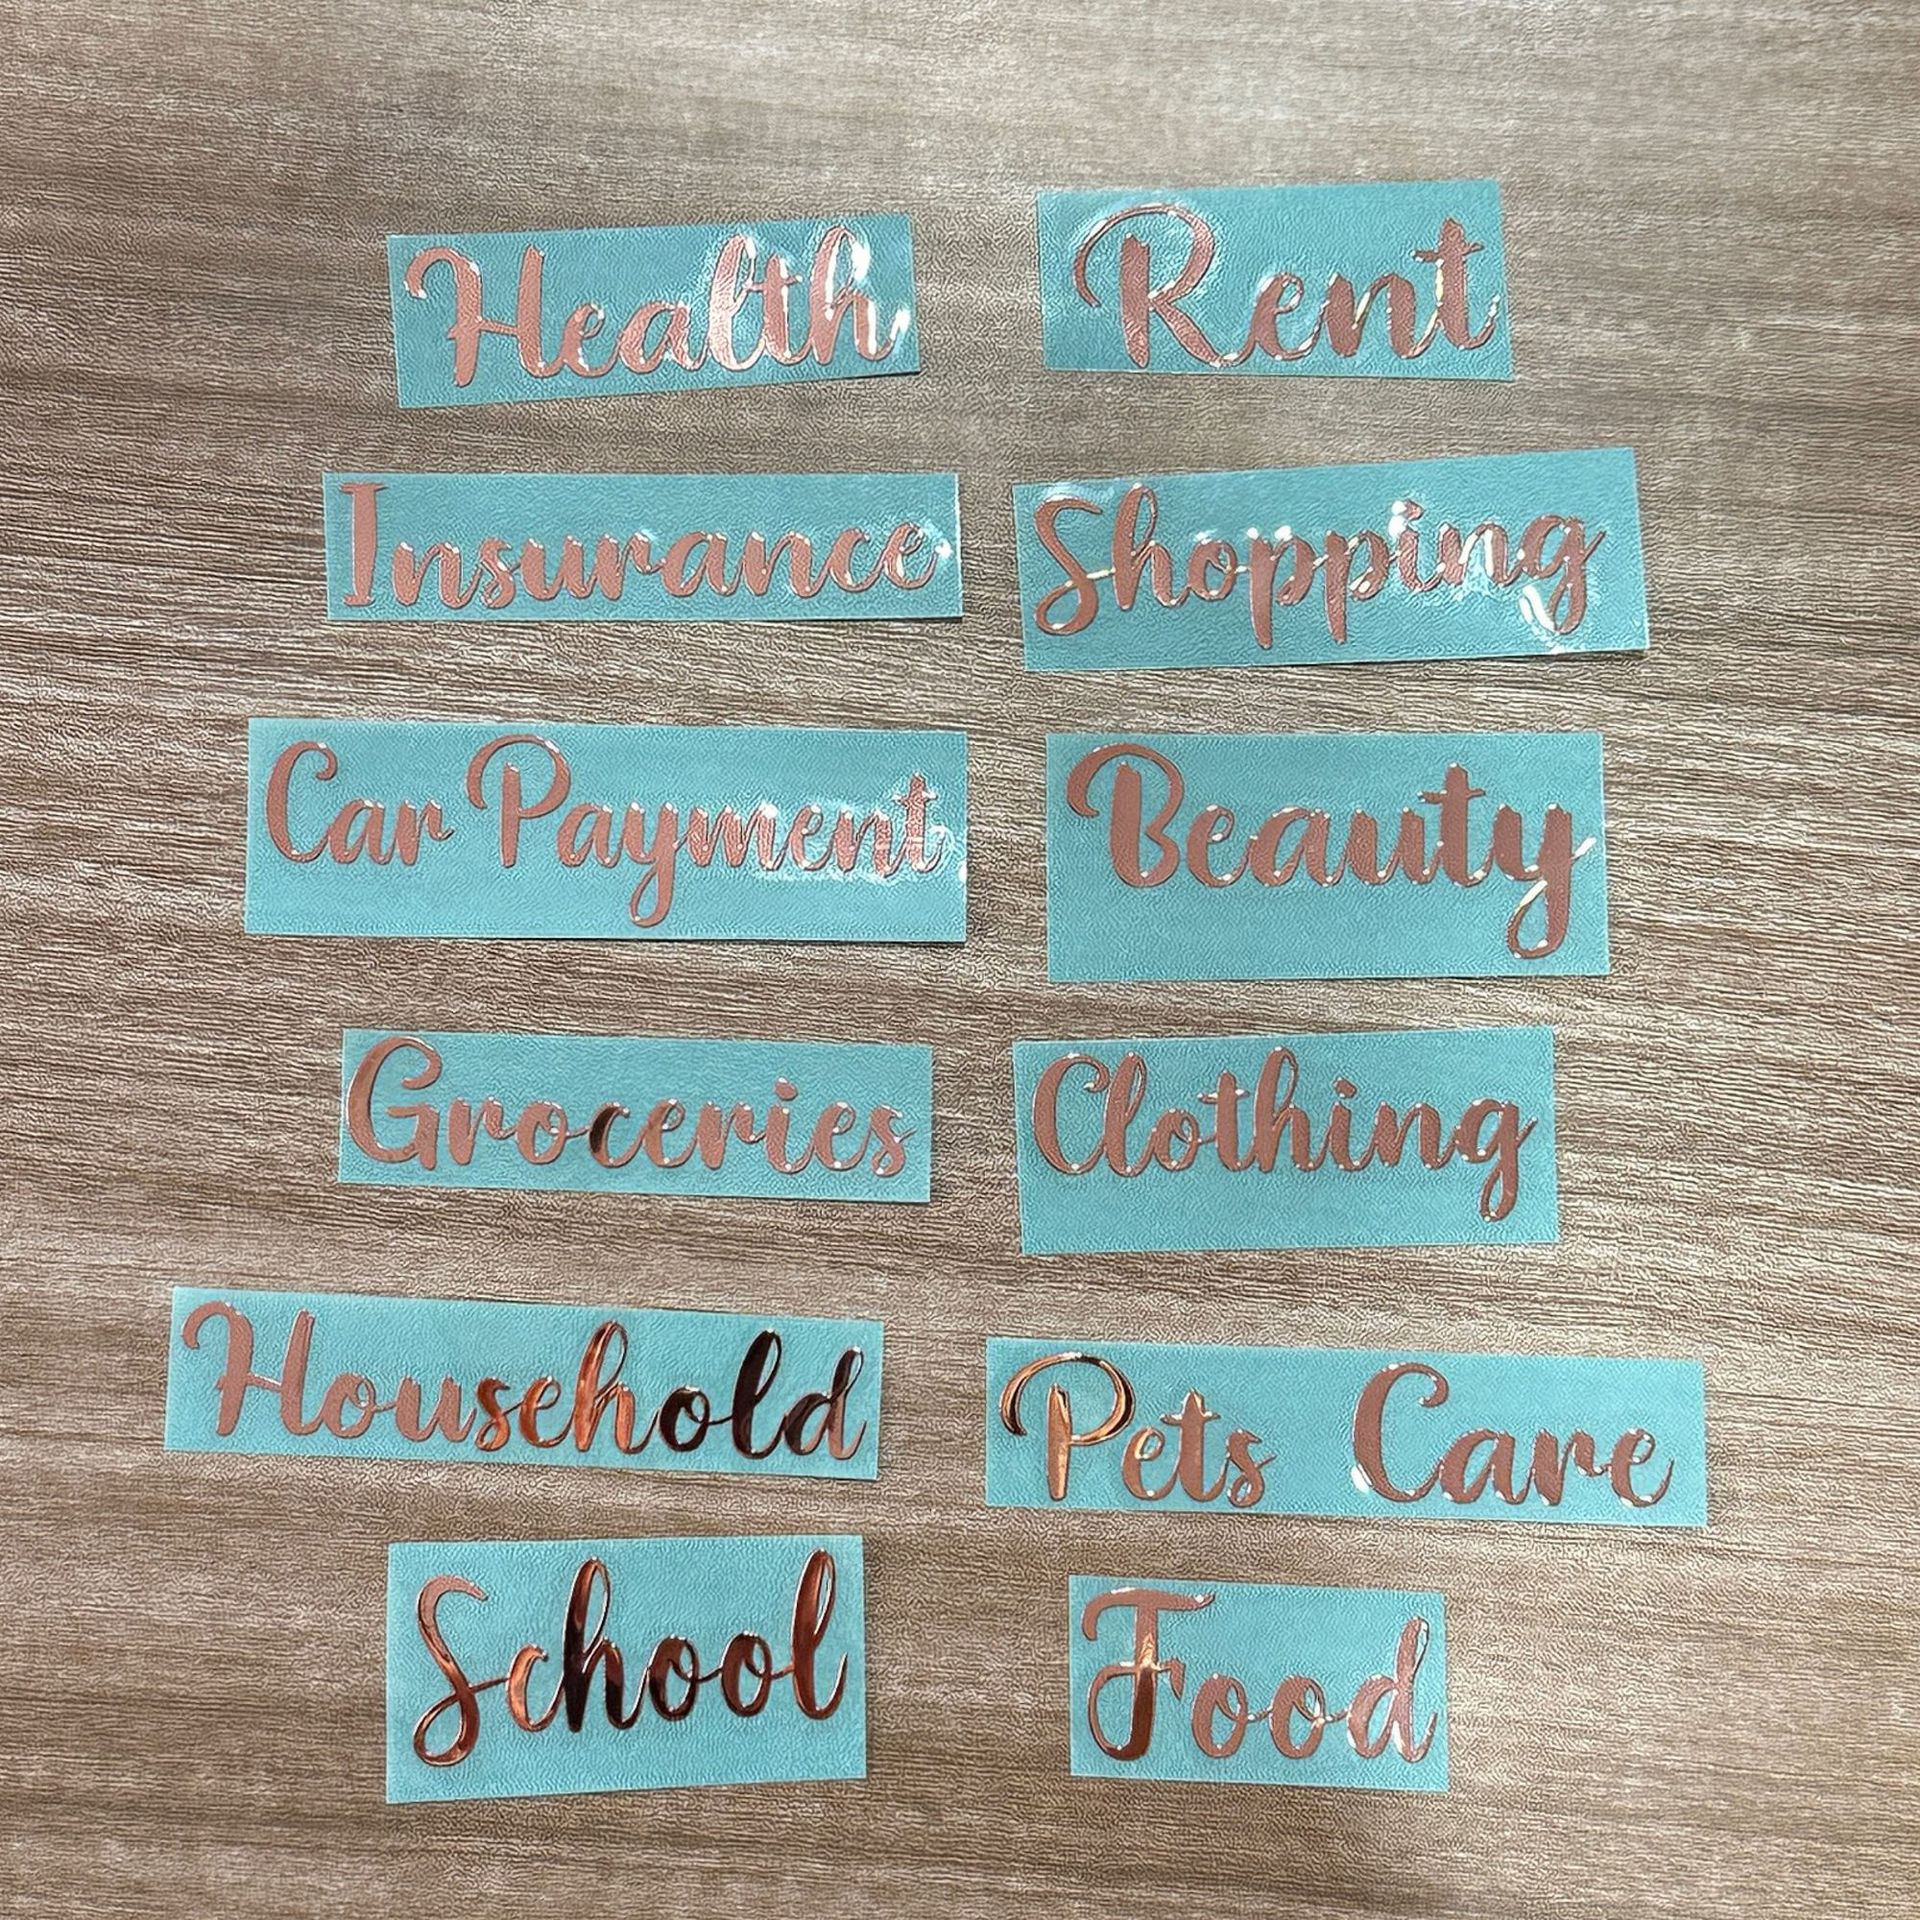 Health
Rent
Insurance
Shopping
Car Payment
Beauty
Groceries
Clothing
Household
Pets Care
School
Food